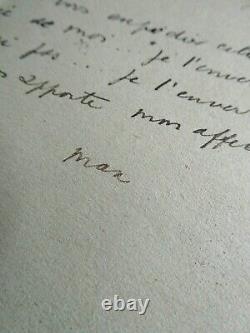 vous expédier
de moi... je l'enver
pas... je l'enver
apporte mon affe
max
ebay